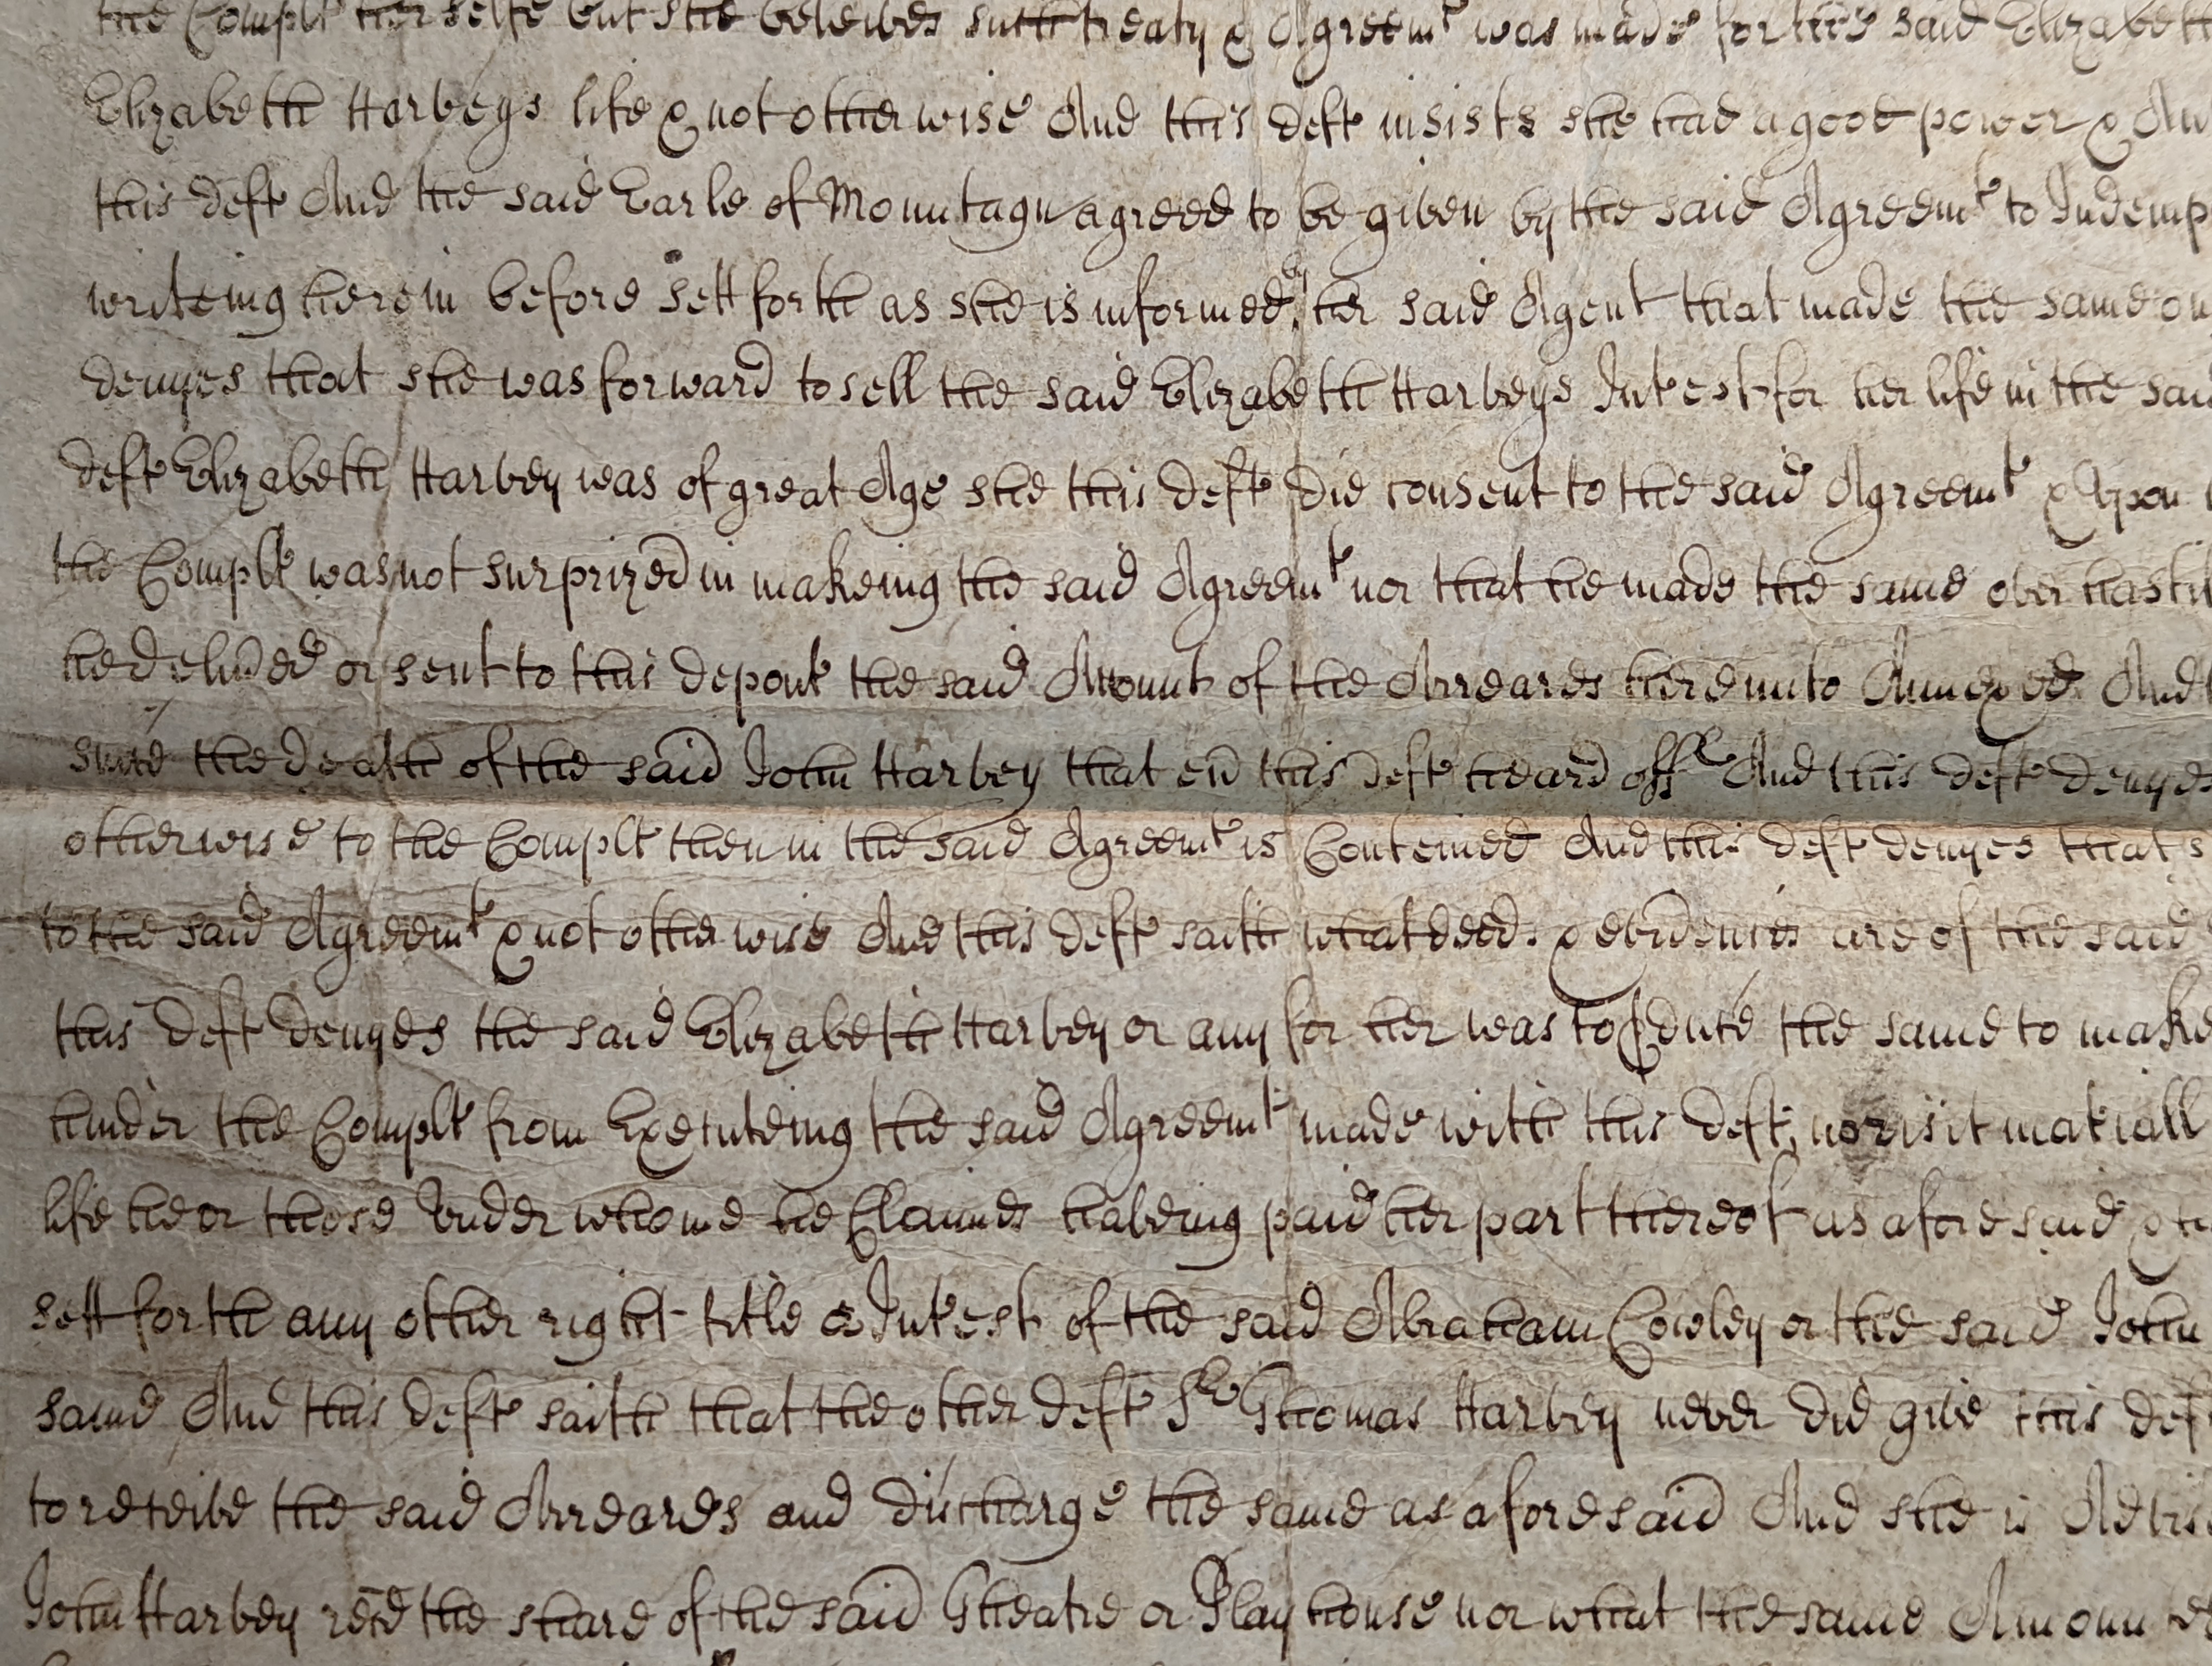 the Complt her selfe but she beleives such treaty & Agreemt was made for the said Elizabeth
Elizabeth Harveys life & not otherwise And this deft insists she had a good power & Au
this deft And the said Earle of Mountagu agreed to be given by the said Agreemt to Indemp
writeing herein before sett forth as she is informed by her said Agent that made the same on
denyes that she was forward to sell the said Elizabeth Harveys Interest for her life in the said
deft Elizabeth Harvey was of great Age she this deft did consent to the said Agreemt & Upon
the Complt was not surprized in makeing the said Agreemt nor that he made the same over hastil
he delived or sent to this depont the said Account of the Arreares thereunto Annexed And
since the death of the said John Harvey that ever this deft heard off And this deft denyes
otherwise to the Complt then in the said Agreemt is Conteined And this deft denyes that s
to the said Agreemt & not otherwise And this deft saith what deeds & evidences are of the said
this deft denyes the said Elizabeth Harvey or any for her was to pduce the same to make
hinder the Complt from Executeing the said Agreemt made with this deft, nor is it matiall
life he or those Under whome he Claimes haveing paid her part thereof as aforesaid & he
sett forth any other right title or Interest of the said Abraham Cowley or the said John
same And this deft saith that the other deft Sr Thomas Harvey never did give this def
to receive the said Arreares and discharge the same as aforesaid And she is Advis
John Harvey recd the share of the said Theatre or Play house nor what the same Amount